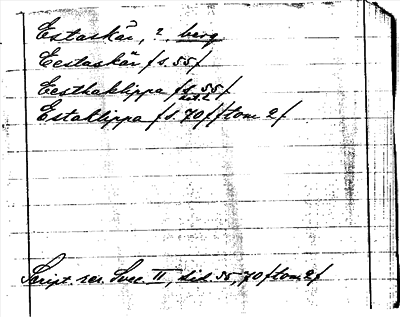 Estaskär, ?, berg
Eestaskär /s. 55/
Eesthaklippa /s. 55/
Estaklippa /s. 70/ /tom 2/
Script. rer. Svec. II, sid. 55, 70 /tom. 2/